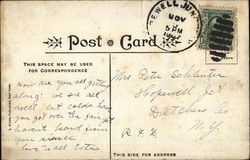 HOPEWELL JUN
NOV
5 PM
Post Card
THIS SPACE MAY BE USED
FOR CORRESPONDENCE
How are you all getting
along? we are all
well but colds have
you got over the
haven't heard from
you since
love to all
Mrs Peter Schlueter
Hopewell Jct
Dutchess Co
R.F.D. N.Y.
THIS SIDE FOR ADDRESS